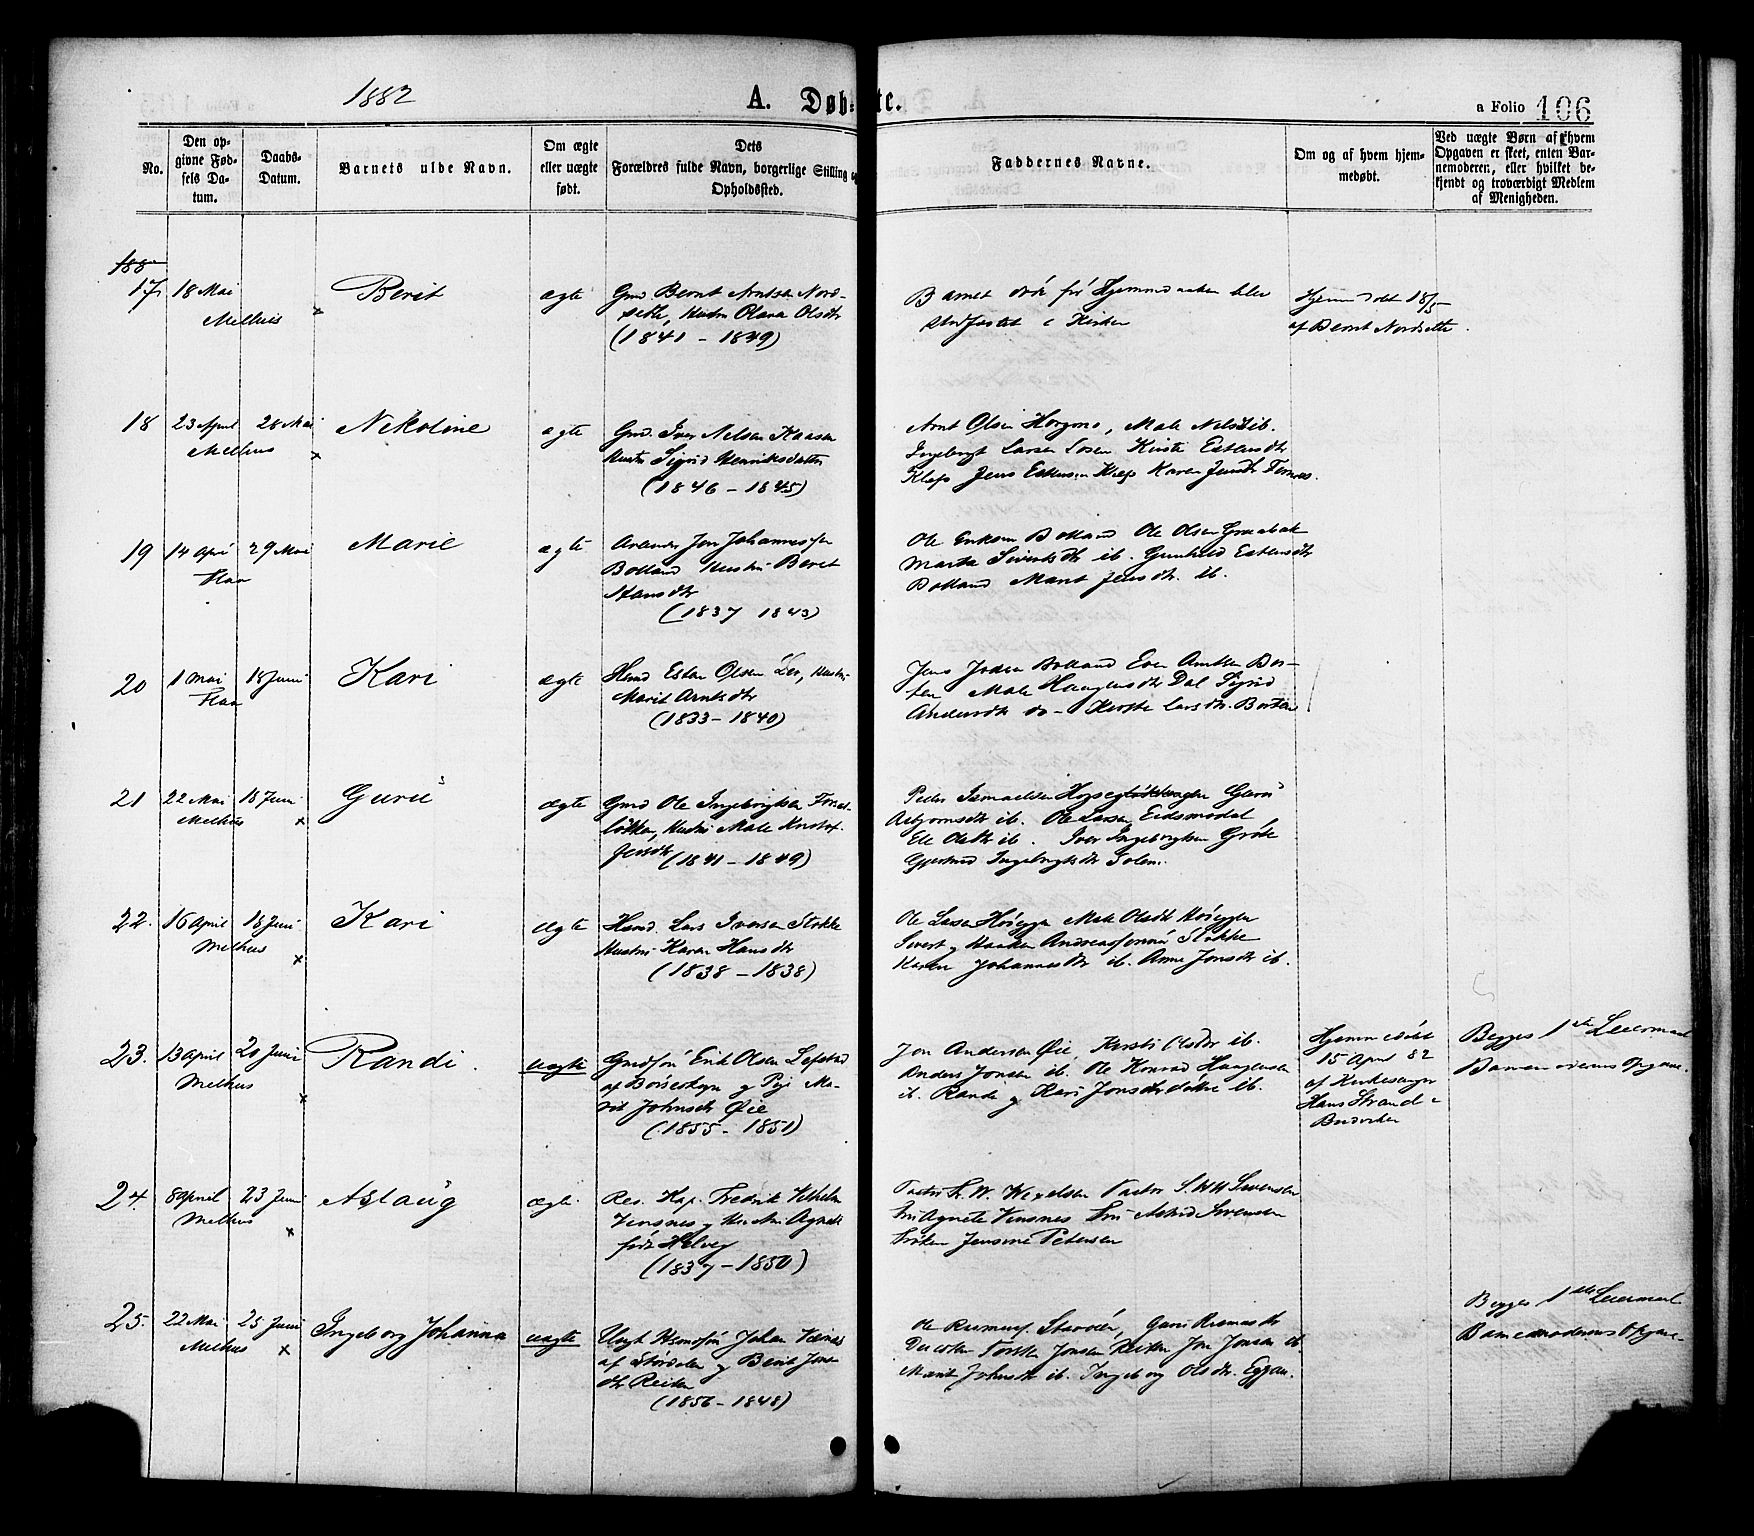 1882
A. Døbte.
a Folio 106
No.
Den opgivne Fødsels Datum.
Daabs-Datum.
Barnets fulde Navn.
Om ægte eller uægte født.
Dets Forældres fulde Navn, borgerlige Stilling og Opholdssted.
Faddernes Navne.
Om og af hvem hjemmedøbt.
Ved uægte Børn af hvem Opgaven er skeet, enten Barnemoderen, eller hvilket bekjendt og troværdigt Medlem af Menigheden.
17 18 Mai Berit ægte Gmd Bernt Arntsen Nord-
Melhus x sette, Hustru Olava Olsdtr
(1841 – 1849)
Barnet døde før Hjemmedaaben blev
stadfæstet i Kirken
Hjemmedøbt 18/5
af Bernt Nordsette.
18 23 April 28 Mai Nikoline ægte Gmd. Iver Nelsen Kaasen
Melhus x Hustru Sigrid Henriksdatter
(1846 – 1845)
Arnt Olsen Horgmo, Male Nelsdtr ib.
Ingebrigt Larsen Losen Kirsti Estensdtr
Klefs Jens Estensen Klefs Karen Jensdtr
19 14 April 29 Mai Marie ægte Jon Johannessen
Flaa Bolland Hustru Beret
Hansdtr
(1837 1843)
Ole Eriksen Bolland Ole Olsen
Marta Sivertsdtr ib. Gunhild Estensdtr
Bolland Marit Jensdtr. ib.
20 1 Mai 18 Juni Kari ægte Hmd Esten Olsen Ler, Hustru
Flaa Marit Arntsdtr
(1833 – 1840)
Jens Bolland Even Arntsen Bor-
ten Male Haagensdtr Dal Sigrid
Andersdtr do – Kirsti Larsdtr. Borten
21 22 Mai 18 Juni Guru ægte Gmd Ole Ingebrigtsen
Melhus x løkken, Hustru Male Kristof-
Jensdtr (1841 – 1849)
Peder Ismaelsen Guru
Asbjørnsdtr ib. Ole Larsen Eidsmodal
Eli Olsdtr ib. Iver Ingebrigtsen
Gjertrud Ingebrigtsdtr Solem.
22. 16 April 18 Juni Kari ægte Hmd. Lars Iversen Stokke
Melhus x Hustru Karen Hansdtr
(1838 – 1838)
Ole Larsen Høiggen Male Olsdtr Høiggen
Sivert og Haaken Andreassønner Stokke
Karen Johannesdtr ib. Anne Jonsdtr ib.
23. 13 April 20 Juni Randi. uægte Gmdsøn Erik Olsen Lefstad
Melhus x af Børseskogn og Pige Ma-
rit Johnsdtr Øie
(1855 – 1851)
Jon Andersen Øie, Kirsti Olsdtr ib.
Anders Jonsen ib. Ole Konrad Haagensen
ib. Randi og Kari Jonsdøtre ib.
Hjemmedøbt
15 April 82
af Kirkesanger
Hans Strand
Begges 1ste Leiermaal
Barnemoderens Opgave.
24. 8 April 23 Juni Aslaug ægte. Res. Kap. Fredrik Vilhelm
Melhus x Vinsnes og Hustru Agnete
født Helveg
(1837 – 1850)
Pastor Fr. W. Wexelsen Pastor Svensen
Fru Agnete Vinsnes Fru Astrid Svensen
Frøken Jensine Petersen
25. 22 Mai 25 Juni Ingeborg Johanna uægte Ungk. Johan
Melhus x af Størdalen og Berit Jons-
dtr Reitan
(1856 – 1848)
Ole
Torsten Jonsen Reitan Jon Jonsen ib
Marit Johnsdtr ib. Ingeborg Olsdtr. Eggan.
Begges 1ste Leiermaal
Barnemoderens Opgave